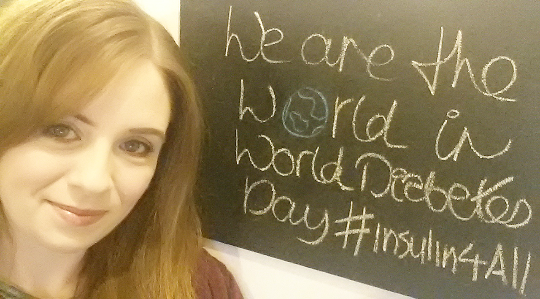 We are the
World in
World Diabetes
Day #insulin4All